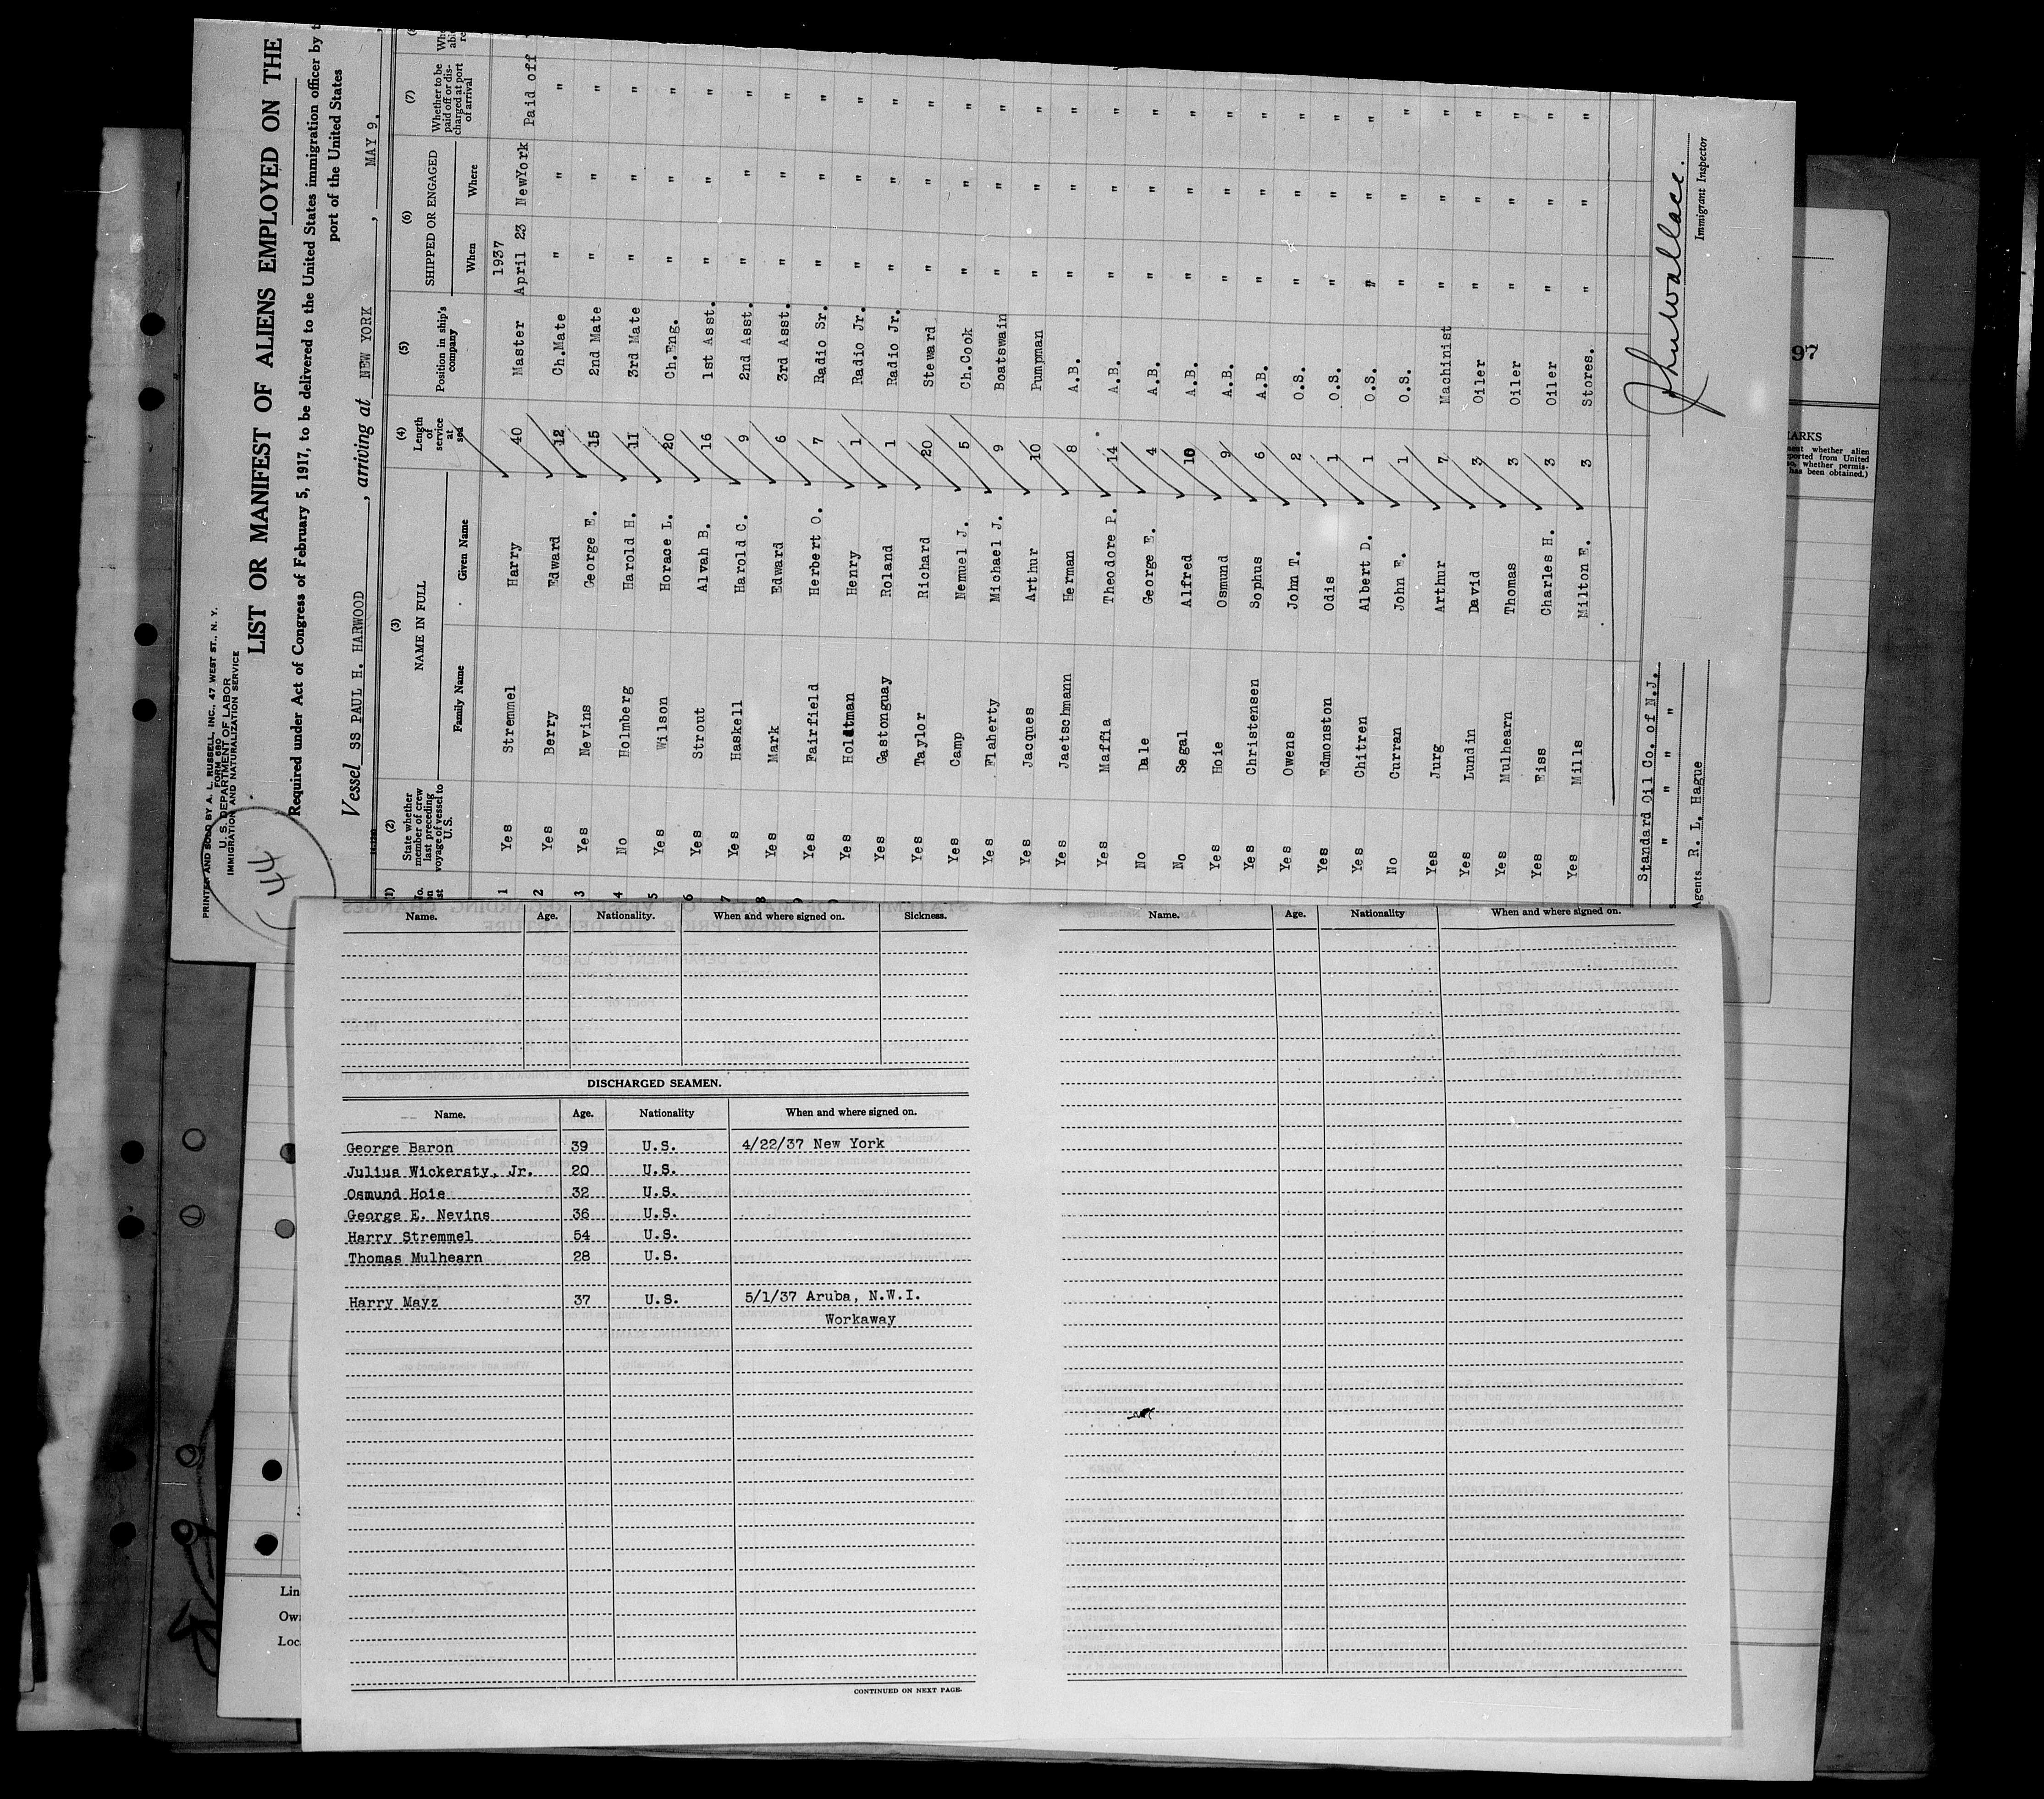 PRINTED AND SOLD BY A. L. RUSSELL, INC., 47 WEST ST., N. Y.
FORM 680
U. S. DEPARTMENT OF LABOR
IMMIGRATION AND NATURALIZATION SERVICE
44
LIST OR MANIFEST OF ALIENS EMPLOYED ON THE
Required under Act of Congress of February 5, 1917, to be delivered to the United States immigration officer by
port of the United States
Vessel SS PAUL H. HARWOOD, arriving at NEW YORK, MAY 9,
(1) (2) (3) (4) (5) (6) (7)
State whether member of crew last preceding voyage of vessel to U.S. NAME IN FULL Length of service at sea Position in ship's company SHIPPED OR ENGAGED Whether to be paid off or discharged at port of arrival
Family Name Given Name When Where
1937
1 Yes Stremmel Harry 40 Master April 23 NewYork Paid off
2 Yes Berry Edward 12 Ch.Mate " " "
3 Yes Nevins George E. 15 2nd Mate " " "
4 No Holmberg Harold H. 11 3rd Mate " " "
5 Yes Wilson Horace L. 20 Ch.Eng. " " "
6 Yes Strout Alvah B. 16 1st Asst. " " "
7 Yes Haskell Harold C. 9 2nd Asst. " " "
8 Yes Mark Edward 6 3rd Asst. " " "
Yes Fairfield Herbert O. 7 Radio Sr. " " "
Yes Holdtman Henry 1 Radio Jr. " " "
Yes Gastonguay Roland 1 Radio Jr. " " "
Yes Taylor Richard 20 Steward " " "
Yes Camp Nemuel J. 5 Ch.Cook " " "
Yes Flaherty Michael J. 9 Boatswain " " "
Yes Jacques Arthur 10 Pumpman " " "
Yes Jaetschmann Herman 8 A.B. " " "
Yes Maffia Theodore P. 14 A.B. " " "
No Dale George E. 4 A.B. " " "
No Segal Alfred 10 A.B. " " "
Yes Hoie Osmund 9 A.B. " " "
Yes Christensen Sophus 6 A.B. " " "
Yes Owens John T. 2 O.S. " " "
Yes Edmonston Odis 1 O.S. " " "
Yes Chitren Albert D. 1 O.S. " " "
No Curran John E. 1 O.S. " " "
Yes Jurg Arthur 7 Machinist " " "
Yes Lundin David 3 Oiler " " "
Yes Mulhearn Thomas 3 Oiler " " "
Yes Eiss Charles H. 3 Oiler " " "
Yes Mills Milton E. 3 Stores. " " "
Standard Oil Co. of N.J.
" " " "
Agents R. L. Hague
Jhuwallace.
Immigrant Inspector
97
Name. Age. Nationality. When and where signed on. Sickness.
DISCHARGED SEAMEN.
Name. Age. Nationality When and where signed on.
George Baron 39 U.S. 4/22/37 New York
Julius Wickersty, Jr. 20 U.S.
Osmund Hoie 32 U.S.
George E. Nevins 36 U.S.
Harry Stremmel 54 U.S.
Thomas Mulhearn 28 U.S.
Harry Mayz 37 U.S. 5/1/37 Aruba, N.W.I.
Workaway
CONTINUED ON NEXT PAGE.
Name. Age. Nationality When and where signed on.
Lin
Own
Loc